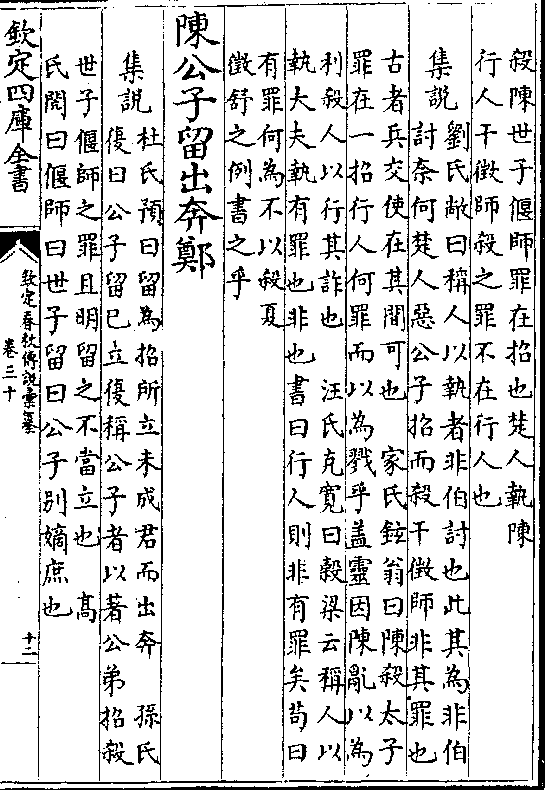 殺陳世子偃師罪在招也楚人執陳
行人干徵師殺之罪不在行人也
集說
劉氏敞曰稱人以執者非伯討也此其為非伯
討奈何楚人惡公子招而殺干徵師非其罪也
古者兵交使在其間可也　家氏鉉翁曰陳殺太子
罪在一招行人何罪而以為戮乎蓋靈因陳亂以為
利殺人以行其詐也　汪氏克寛曰穀梁云稱人以
執大夫執有罪也非也書曰行人則非有罪矣茍曰
有罪何為不以殺夏
徵舒之例書之乎
陳公子留出奔鄭
集說
杜氏預曰留為招所立未成君而出奔　孫氏
復曰公子留已立復稱公子者以著公弟招殺
世子偃師之罪且明留之不當立也　髙
氏閌曰偃師曰世子留曰公子別嫡庶也
欽定四庫全書
欽定春秋傳說彙纂
卷三十
十二